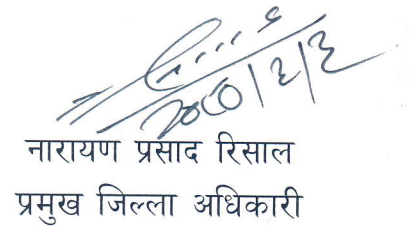 २०८०/२/३
नारायण प्रसाद रिसाल
प्रमुख जिल्ला अधिकारी